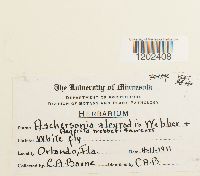 1202408
The University of Minnesota
DEPARTMENT OF AGRICULTURE
DIVISION OF BOTANY AND PLANT PATHOLOGY
HERBARIUM
Name Aschersonia aleyrodis Webber +
Aegerita webberi Fawcett
White fly
Locality Orlando, Fla. Date 8-11-1911
Collected by C.A. Boone Identified by C.A.B.